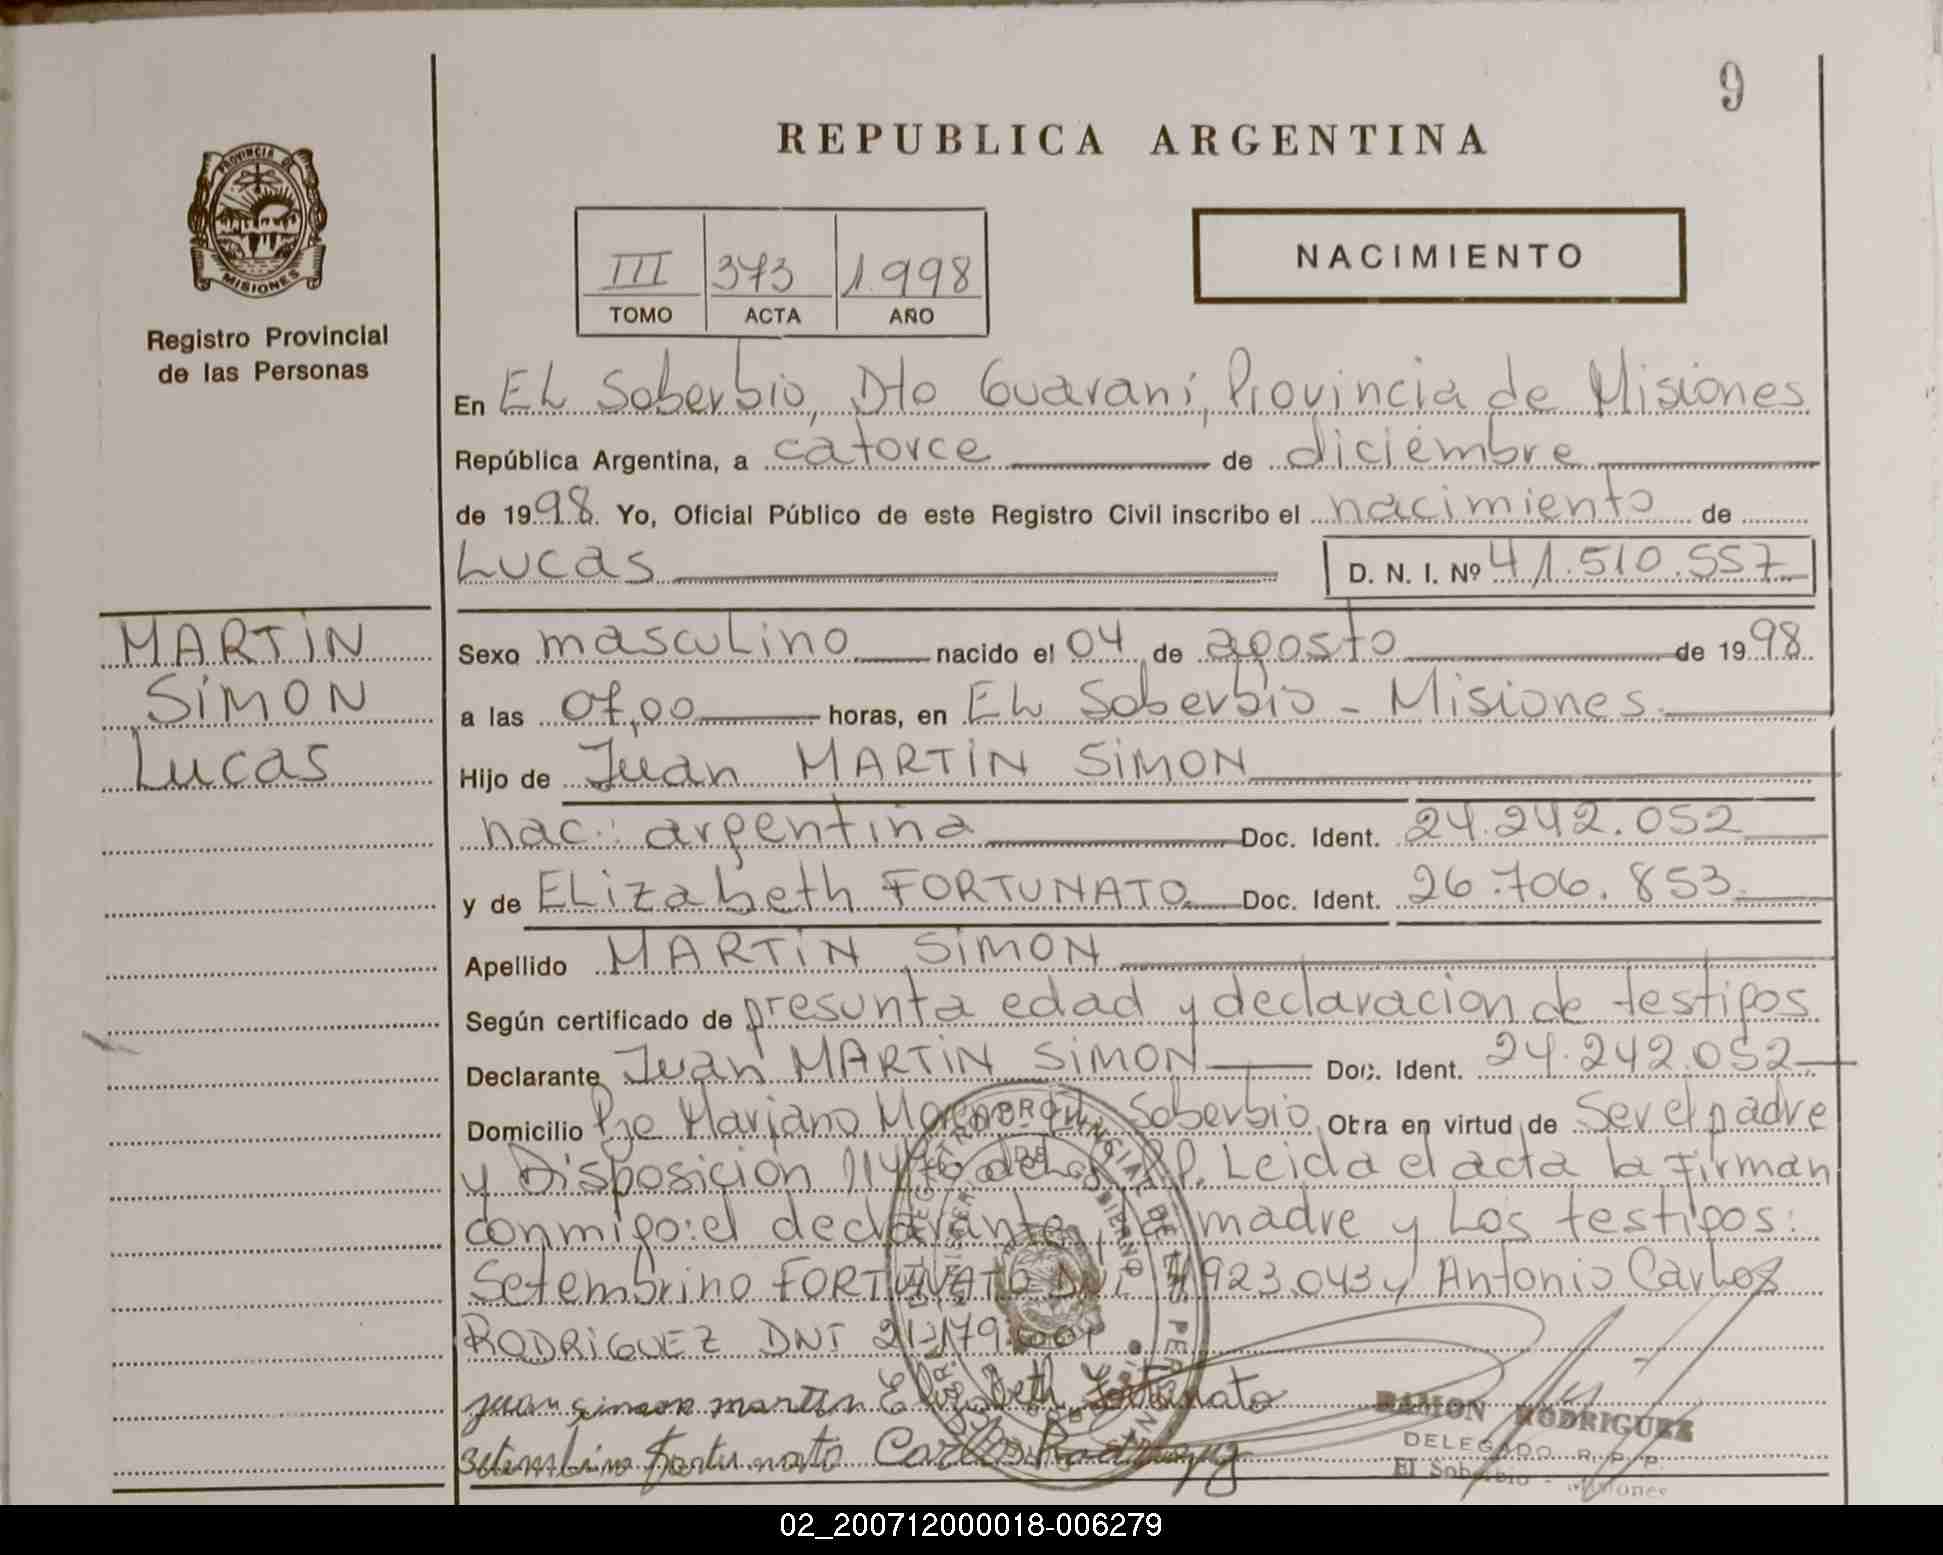 9
REPUBLICA ARGENTINA
PROVINCIA DE
MISIONES
Registro Provincial
de las Personas
III 373 1.998
TOMO ACTA AÑO
NACIMIENTO
En EL Soberbio, Dto Guaraní, Provincia de Misiones
República Argentina, a catorce de diciembre
de 1998. Yo, Oficial Público de este Registro Civil inscribo el nacimiento de
Lucas D. N. I. Nº 41.510.557
MARTIN
SIMON
Lucas
Sexo masculino nacido el 04 de agosto de 1998.
a las 07,00 horas, en EL Soberbio - Misiones
Hijo de Juan MARTIN SIMON
nac: argentina Doc. Ident. 24.242.052
y de ELizabeth FORTUNATO Doc. Ident. 26.706.853
Apellido MARTIN SIMON
Según certificado de presunta edad y declaracion de testigos
Declarante Juan MARTIN SIMON Doc. Ident. 24.242.052
Domicilio Pje Mariano Soberbio Obra en virtud de Ser el padre
y Disposición Leida el acta la firman
conmigo: el declarante, la madre y Los testigos:
Setembrino FORTUNATO DNI 923.043 y Antonio Carlos
RODRIGUEZ DNI
juan simon martin Elizabeth Fortunato
setembrino fortunato Carlos Rodriguez
RAMON RODRIGUEZ
DELEGADO R. P. P.
El Soberbio - Misiones
02_200712000018-006279